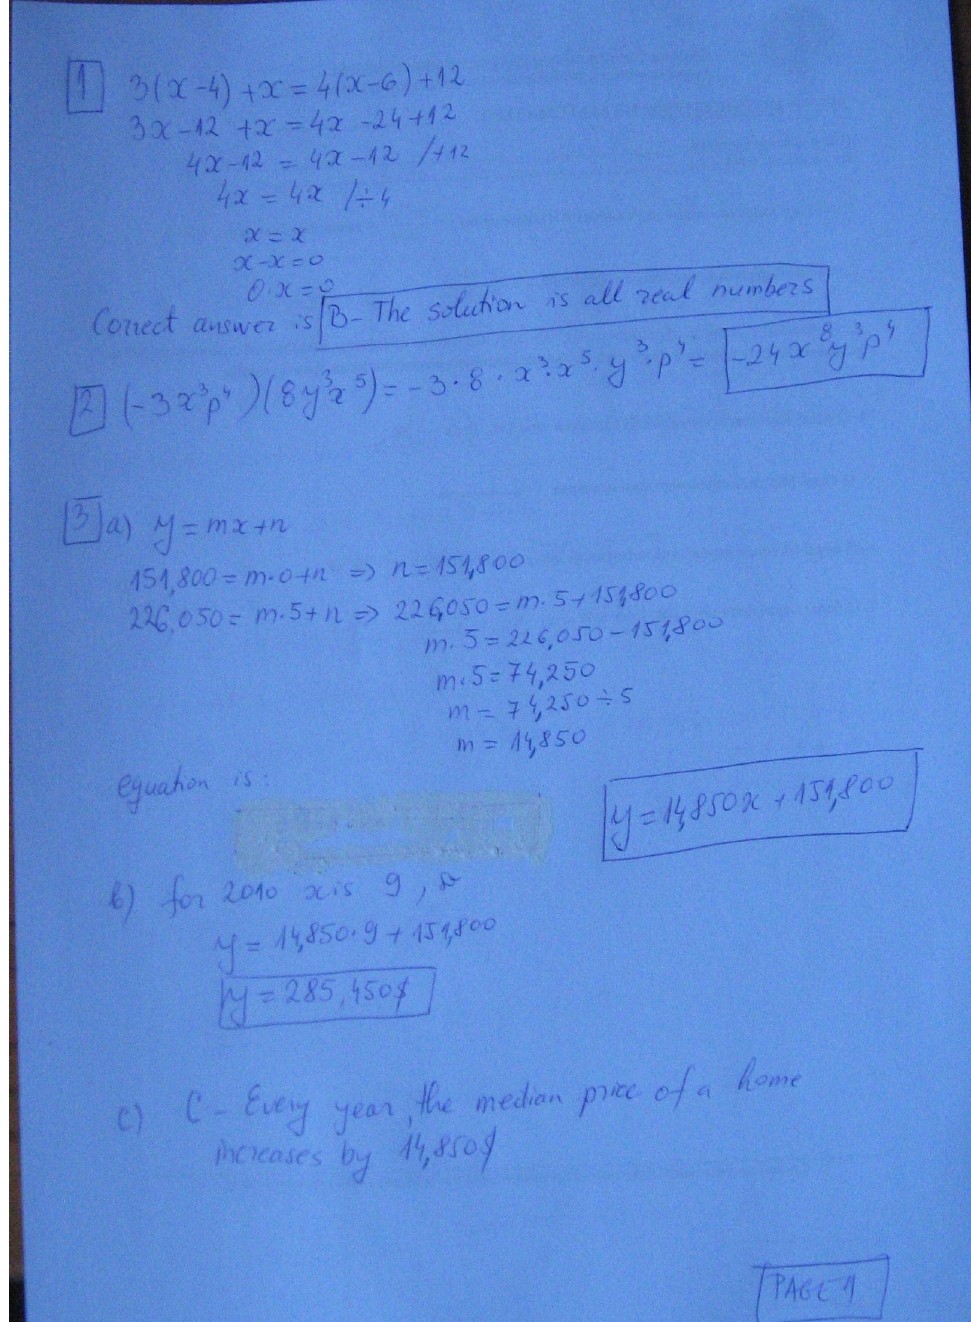 1 3(x-4)+x=4(x-6)+12
3x-12+x=4x-24+12
4x-12=4x-12 /+12
4x=4x /÷4
x=x
x-x=0
0·x=0
Correct answer is B- The solution is all real numbers
2 (-3x³p⁴)(8y³x⁵)=-3·8·x³·x⁵·y³·p⁴= -24x⁸y³p⁴
3 a) y=mx+n
151,800=m·0+n => n=151,800
226,050=m·5+n => 226,050=m·5+151,800
m·5=226,050-151,800
m·5=74,250
m=74,250÷5
m=14,850
equation is: y=14,850x+151,800
b) for 2010 x is 9,
y=14,850·9+151,800
y=285,450$
c) C- Every year, the median price of a home
increases by 14,850$
PAGE 1